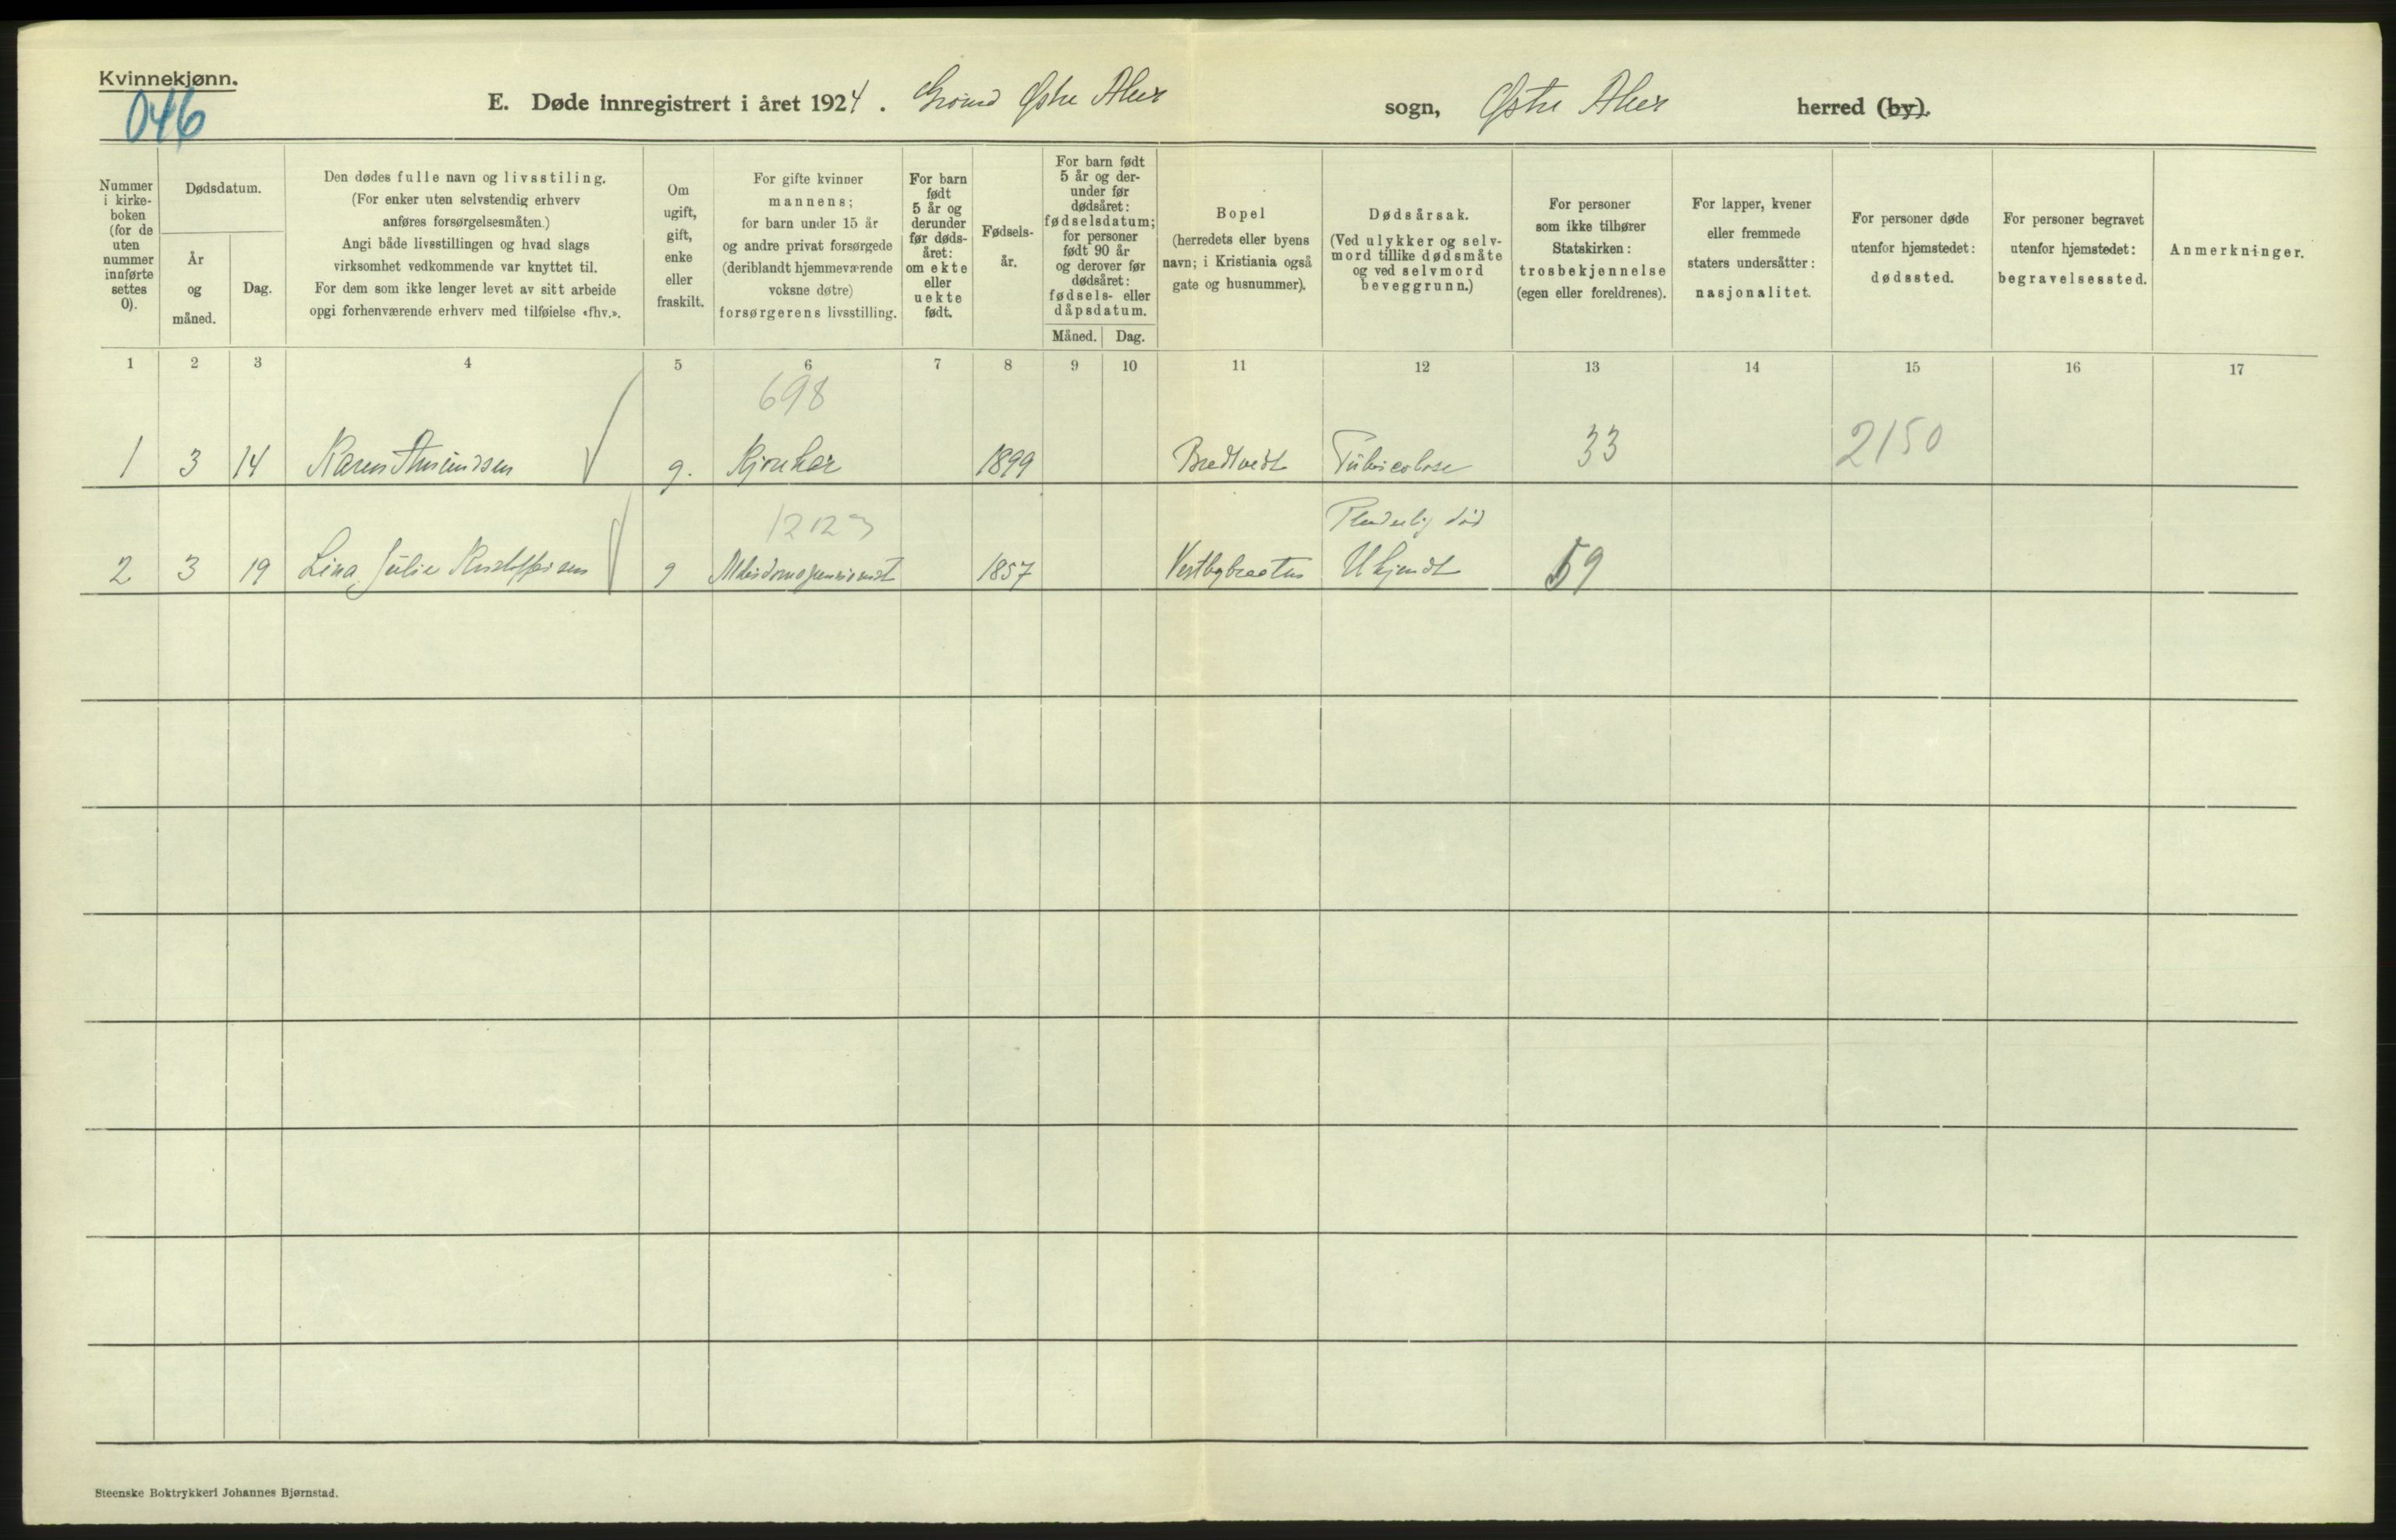 Kvinnekjønn.
046
E. Døde innregistrert i året 1924. Grorud Østre Aker sogn, Østre Aker herred (by).
Nummer i kirkeboken (for de uten nummer innførte settes 0).
Dødsdatum.
År og måned.
Dag.
Den dødes fulle navn og livsstiling.
(For enker uten selvstendig erhverv
anføres forsørgelsesmåten.)
Angi både livsstillingen og hvad slags
virksomhet vedkommende var knyttet til.
For dem som ikke lenger levet av sitt arbeide
opgi forhenværende erhverv med tilføielse «fhv.».
Om
ugift,
gift,
enke
eller
fraskilt.
For gifte kvinner
mannens;
for barn under 15 år
og andre privat forsørgede
(deriblandt hjemmeværende
voksne døtre)
forsørgerens livsstilling.
For barn
født
5 år og
derunder
før døds-
året:
om ekte
eller
uekte
født.
Fødsels-
år.
For barn født
5 år og der-
under før
dødsåret:
fødselsdatum;
for personer
født 90 år
og derover før
dødsåret:
fødsels- eller
dåpsdatum.
Måned. Dag.
Bopel
(herredets eller byens
navn; i Kristiania også
gate og husnummer).
Dødsårsak.
(Ved ulykker og selv-
mord tillike dødsmåte
og ved selvmord
beveggrunn.)
For personer
som ikke tilhører
Statskirken:
trosbekjennelse
(egen eller foreldrenes).
For lapper, kvener
eller fremmede
staters undersåtter:
nasjonalitet.
For personer døde
utenfor hjemstedet:
dødssted.
For personer begravet
utenfor hjemstedet:
begravelsessted.
Anmerkninger.
1 2 3 4 5 6 7 8 9 10 11 12 13 14 15 16 17
698
1 3 14 Karen Amundsen g. Kjørekar 1899 Bredtvedt Tuberculose 33 2150
12123
Pludselig død
2 3 19 Lina Julie Rudolfsen g 1857 Vestbybraaten Ukjendt 59
Steenske Boktrykkeri Johannes Bjørnstad.